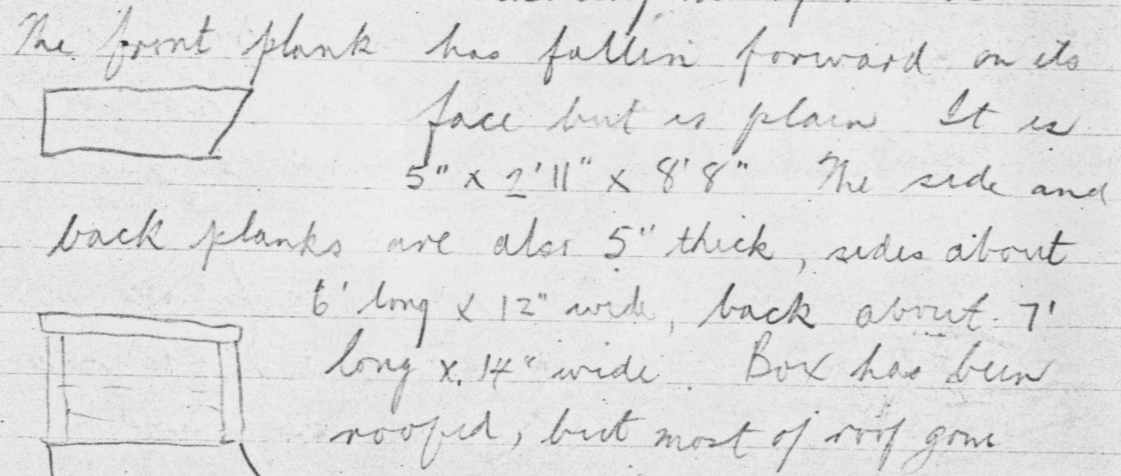 The front plank has fallen forward on its
face but is plain It is
5" x 2'11" x 8'8" The side and
back planks are also 5" thick, sides about
6' long x 12" wide, back about 7'
long x 14" wide. Box has been
roofed, but most of roof gone